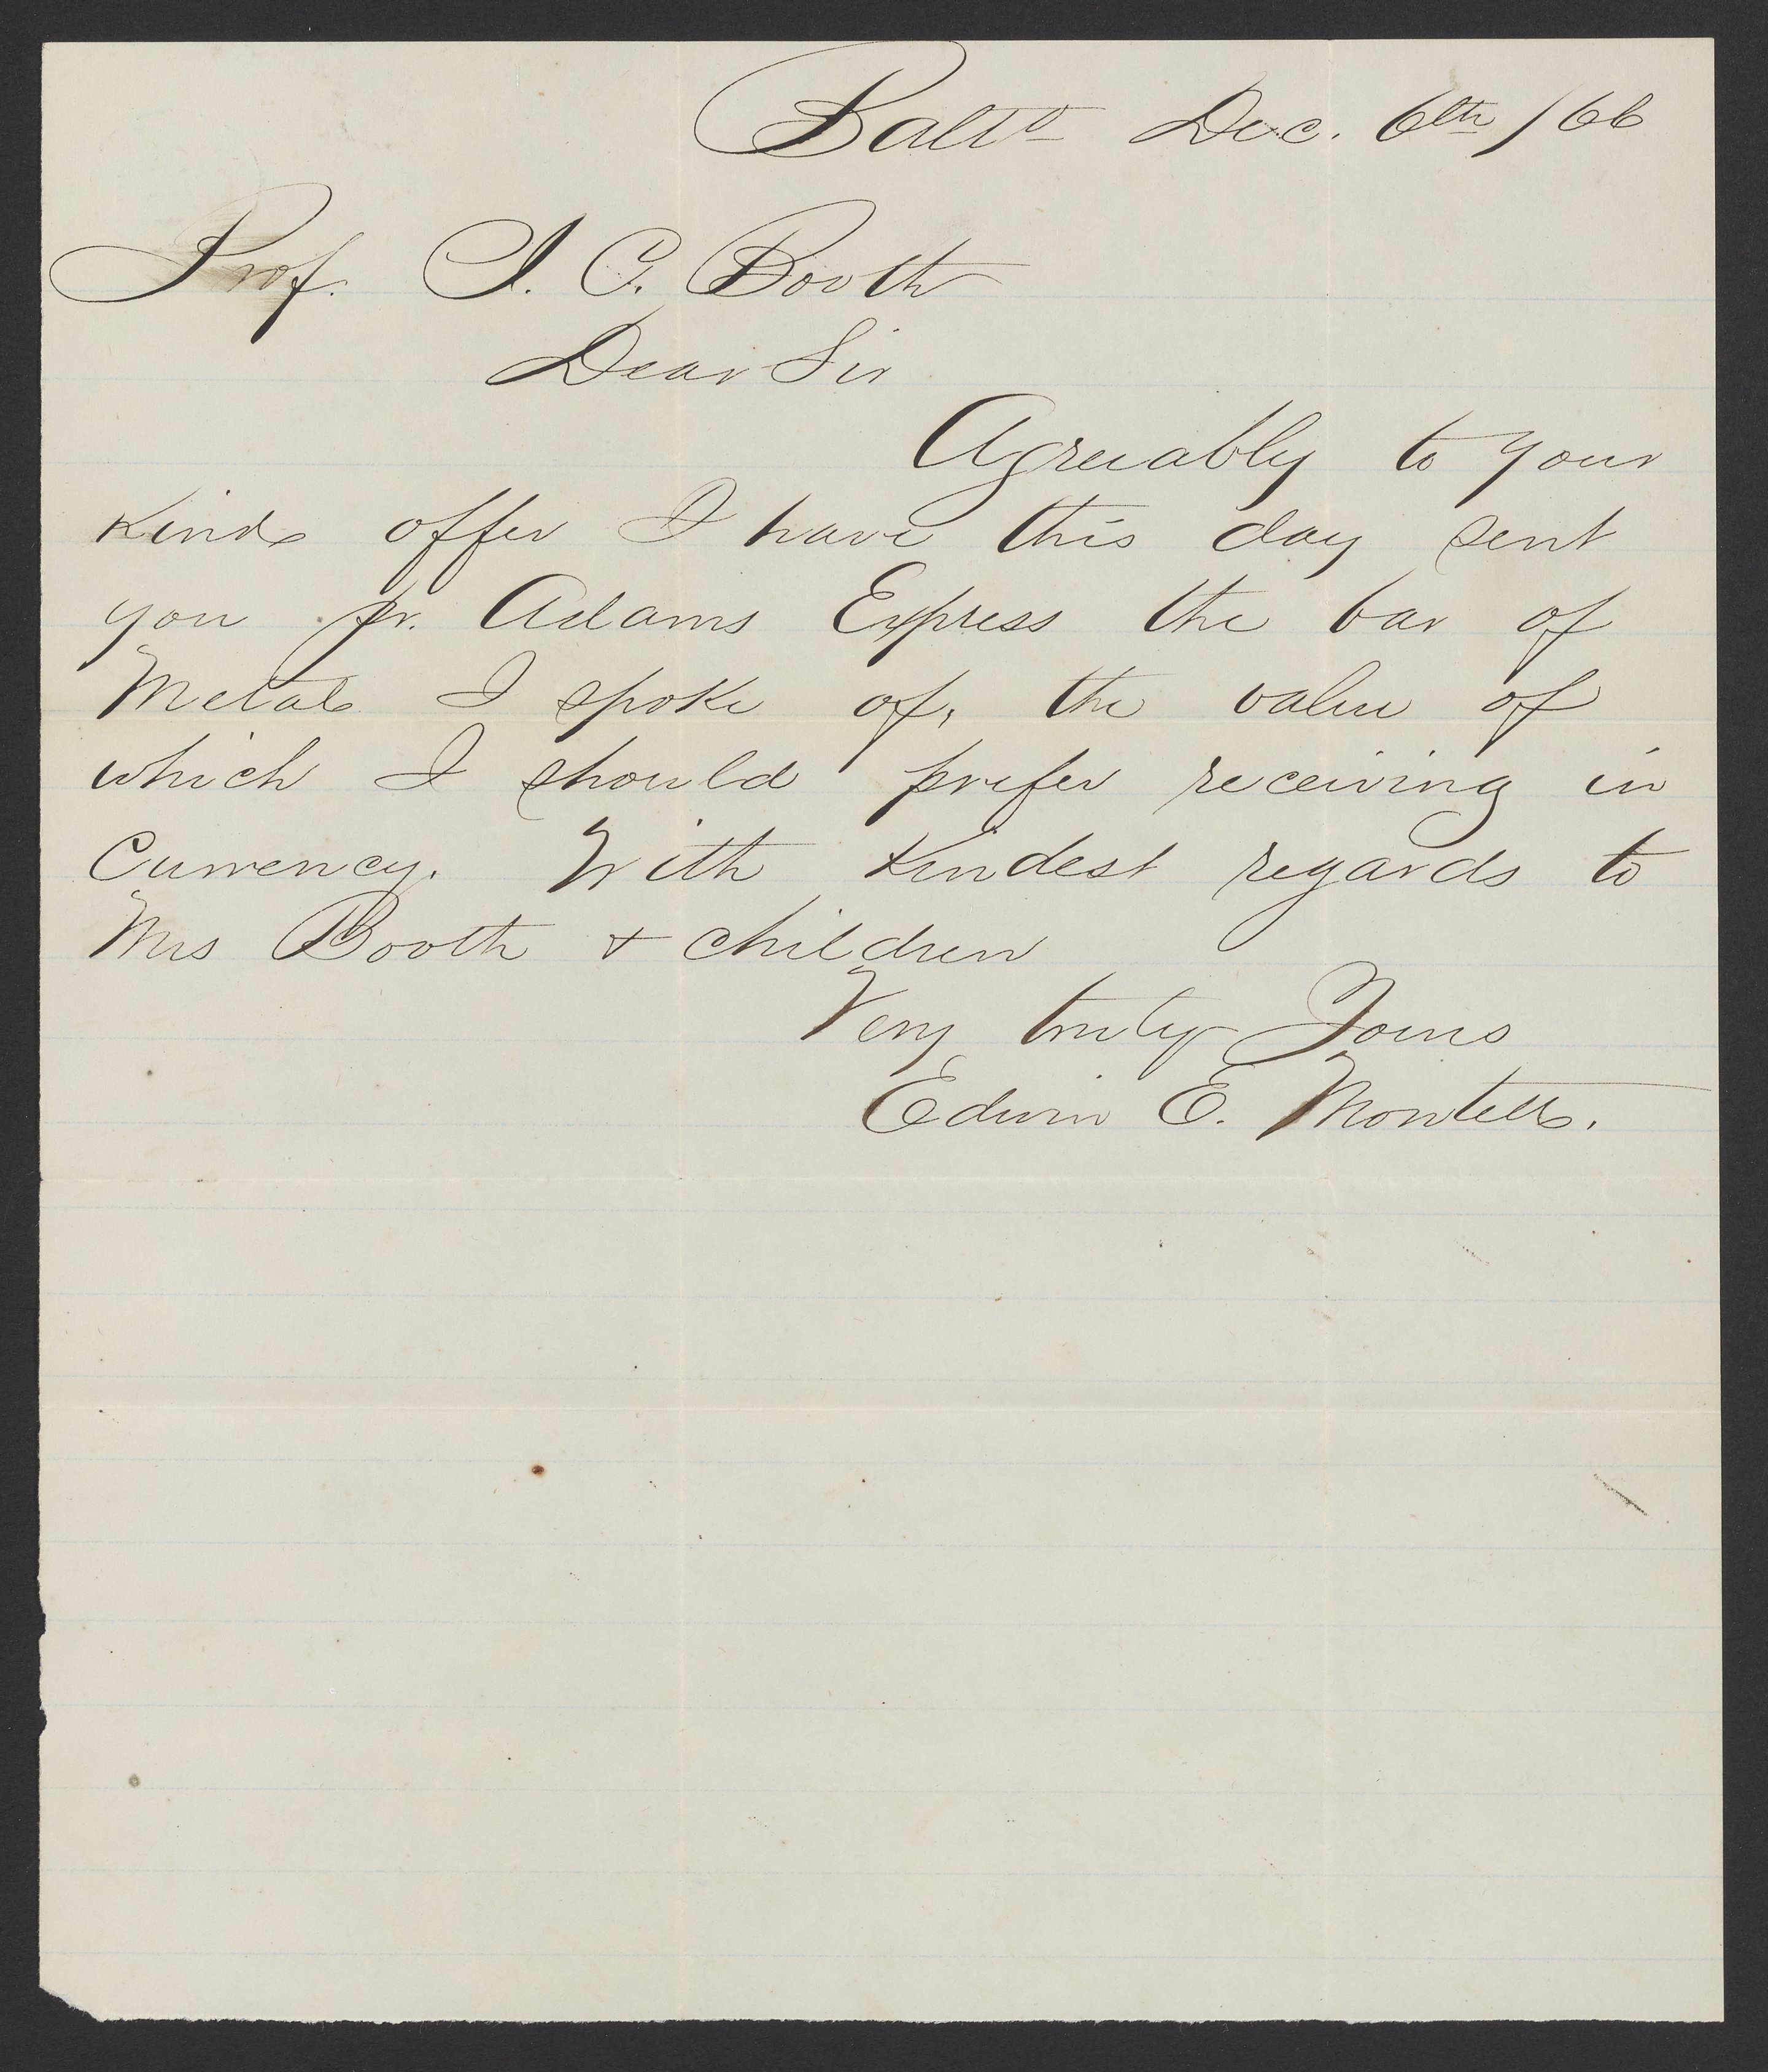 Balto Dec. 6th /66
Prof. J. C. Booth
Dear Sir
Agreeably to your
kind offer I have this day sent
you pr. Adams Express the bar of
Metal I spoke of, the value of
which I should prefer receiving in
Currency. With kindest regards to
Mrs Booth + children
Very truly Yours
Edwin E. Montell.